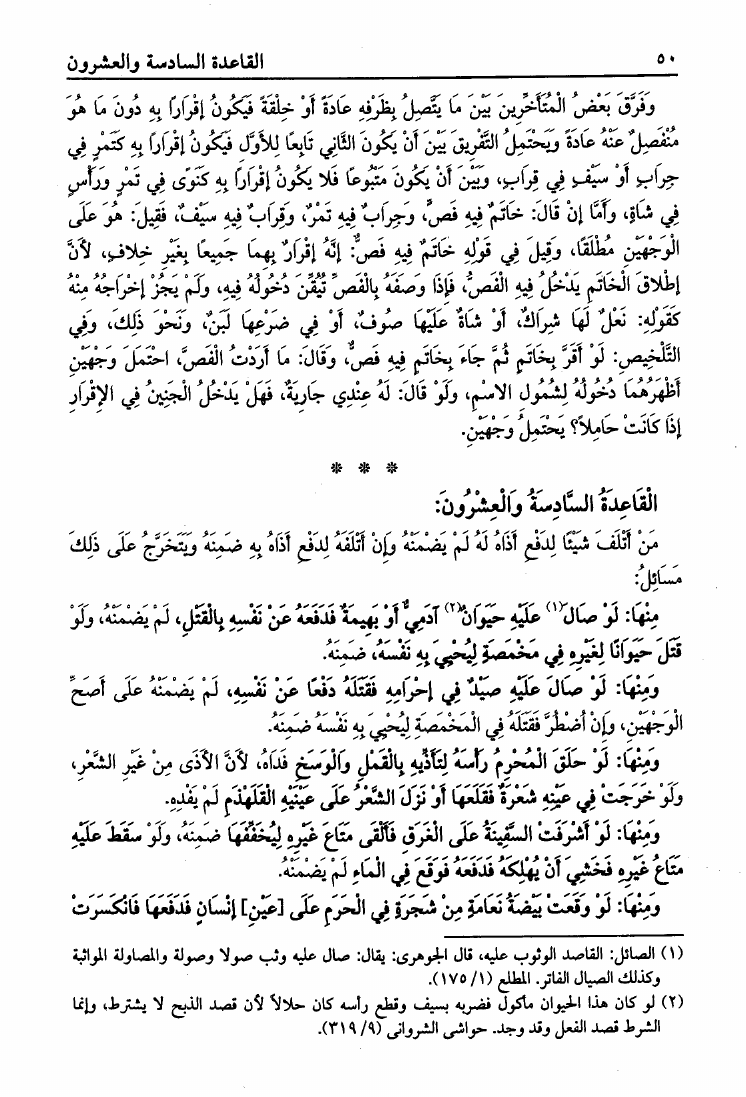 ٥٠ القاعدة السادسة والعشرون
وَفَرَّقَ بَعْضُ الْمُتَأَخِّرِينَ بَيْنَ مَا يَتَّصِلُ بِظَرْفِهِ عَادَةً أَوْ خِلْقَةً فَيَكُونُ إِقْرَارًا بِهِ دُونَ مَا هُوَ
مُنْفَصِلٌ عَنْهُ عَادَةً وَيَحْتَمِلُ التَّفْرِيقَ بَيْنَ أَنْ يَكُونَ الثَّانِي تَابِعًا لِلأَوَّلِ فَيَكُونُ إِقْرَارًا بِهِ كَتَمْرٍ فِي
جِرَابٍ أَوْ سَيْفٍ فِي قِرَابٍ، وَبَيْنَ أَنْ يَكُونَ مَتْبُوعًا فَلا يَكُونُ إِقْرَارًا بِهِ كَنَوًى فِي تَمْرٍ وَرَأْسٍ
فِي شَاةٍ، وَأَمَّا إِنْ قَالَ: خَاتَمٌ فِيهِ فَصٌّ، وَجِرَابٌ فِيهِ تَمْرٌ، وَقِرَابٌ فِيهِ سَيْفٌ، فَقِيلَ: هُوَ عَلَى
الْوَجْهَيْنِ مُطْلَقًا، وَقِيلَ فِي قَوْلِهِ خَاتَمٌ فِيهِ فَصٌّ: إِنَّهُ إِقْرَارٌ بِهِمَا جَمِيعًا بِغَيْرِ خِلافٍ، لأَنَّ
إِطْلاقَ الْخَاتَمِ يَدْخُلُ فِيهِ الْفَصُّ، فَإِذَا وَصَفَهُ بِالْفَصِّ تُيُقِّنَ دُخُولُهُ فِيهِ، وَلَمْ يَجُزْ إِخْرَاجُهُ مِنْهُ
كَقَوْلِهِ: نَعْلٌ لَهَا شِرَاكٌ، أَوْ شَاةٌ عَلَيْهَا صُوفٌ، أَوْ فِي ضَرْعِهَا لَبَنٌ، وَنَحْوَ ذَلِكَ، وَفِي
التَّلْخِيصِ: لَوْ أَقَرَّ بِخَاتَمٍ ثُمَّ جَاءَ بِخَاتَمٍ فِيهِ فَصٌّ، وَقَالَ: مَا أَرَدْتُ الْفَصَّ، احْتَمَلَ وَجْهَيْنِ
أَظْهَرُهُمَا دُخُولُهُ لِشُمُولِ الاسْمِ، وَلَوْ قَالَ: لَهُ عِنْدِي جَارِيَةٌ، فَهَلْ يَدْخُلُ الْجَنِينُ فِي الإِقْرَارِ
إِذَا كَانَتْ حَامِلاً؟ يَحْتَمِلُ وَجْهَيْنِ.
* * *
الْقَاعِدَةُ السَّادِسَةُ وَالْعِشْرُونَ:
مَنْ أَتْلَفَ شَيْئًا لِدَفْعِ أَذَاهُ لَهُ لَمْ يَضْمَنْهُ وَإِنْ أَتْلَفَهُ لِدَفْعِ أَذَاهُ بِهِ ضَمِنَهُ وَيَتَخَرَّجُ عَلَى ذَلِكَ
مَسَائِلُ:
مِنْهَا: لَوْ صَالَ(١) عَلَيْهِ حَيَوَانٌ(٢) آدَمِيٌّ أَوْ بَهِيمَةٌ فَدَفَعَهُ عَنْ نَفْسِهِ بِالْقَتْلِ، لَمْ يَضْمَنْهُ، وَلَوْ
قَتَلَ حَيَوَانًا لِغَيْرِهِ فِي مَخْمَصَةٍ لِيُحْيِيَ بِهِ نَفْسَهُ، ضَمِنَهُ.
وَمِنْهَا: لَوْ صَالَ عَلَيْهِ صَيْدٌ فِي إِحْرَامِهِ فَقَتَلَهُ دَفْعًا عَنْ نَفْسِهِ، لَمْ يَضْمَنْهُ عَلَى أَصَحِّ
الْوَجْهَيْنِ، وَإِنْ اُضْطُرَّ فَقَتَلَهُ فِي الْمَخْمَصَةِ لِيُحْيِيَ بِهِ نَفْسَهُ ضَمِنَهُ.
وَمِنْهَا: لَوْ حَلَقَ الْمُحْرِمُ رَأْسَهُ لِتَأَذِّيهِ بِالْقَمْلِ وَالْوَسَخِ فَدَاهُ، لأَنَّ الأَذَى مِنْ غَيْرِ الشَّعْرِ،
وَلَوْ خَرَجَتْ فِي عَيْنِهِ شَعْرَةٌ فَقَلَعَهَا أَوْ نَزَلَ الشَّعْرُ عَلَى عَيْنَيْهِ الْقَلَهْذَمِ لَمْ يَفْدِهِ.
وَمِنْهَا: لَوْ أَشْرَفَتْ السَّفِينَةُ عَلَى الْغَرَقِ فَأَلْقَى مَتَاعَ غَيْرِهِ لِيُخَفِّفَهَا ضَمِنَهُ، وَلَوْ سَقَطَ عَلَيْهِ
مَتَاعُ غَيْرِهِ فَخَشِيَ أَنْ يُهْلِكَهُ فَدَفَعَهُ فَوَقَعَ فِي الْمَاءِ لَمْ يَضْمَنْهُ.
وَمِنْهَا: لَوْ وَقَعَتْ بَيْضَةُ نَعَامَةٍ مِنْ شَجَرَةٍ فِي الْحَرَمِ عَلَى [عَيْنِ] إِنْسَانٍ فَدَفَعَهَا فَانْكَسَرَتْ
(١) الصائل: القاصد الوثوب عليه، قال الجوهرى: يقال: صال عليه وثب صولا وصولة والمصاولة المواثبة
وكذلك الصيال الفاتر. المطلع (١/ ١٧٥).
(٢) لو كان هذا الحيوان مأكول فضربه بسيف وقطع رأسه كان حلالاً لأن قصد الذبح لا يشترط، وإنما
الشرط قصد الفعل وقد وجد. حواشى الشروانى (٩/ ٣١٩).